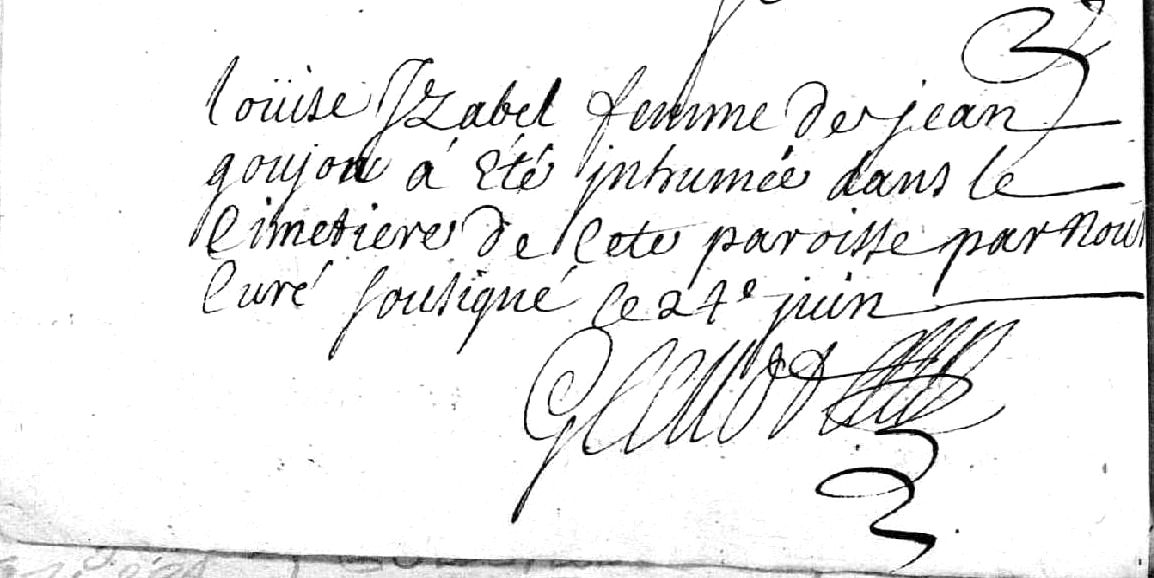 louise Jzabel femme de jean
goujon á été jnhumée dans le
Cimetiere de Cete paroisse par nous
Curé sousigné le 24e juin